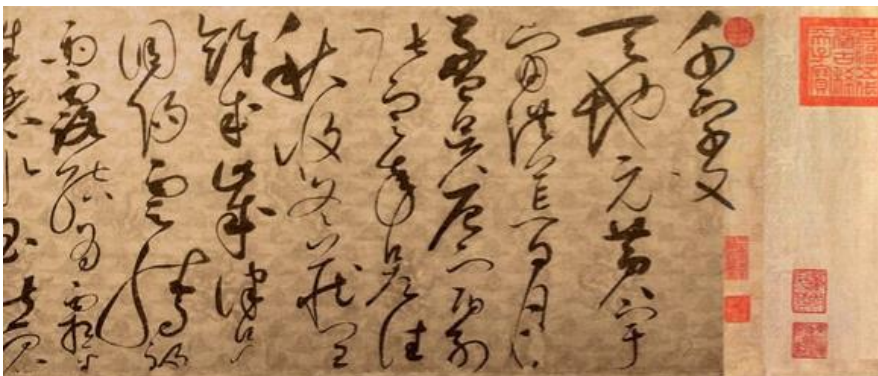 千字文
天地元黃宇
宙洪荒日月
盈昃辰宿列
張寒來暑往
秋收冬藏閏
餘成歲律呂
調陽雲騰致
雨露結為霜
生麗水玉出